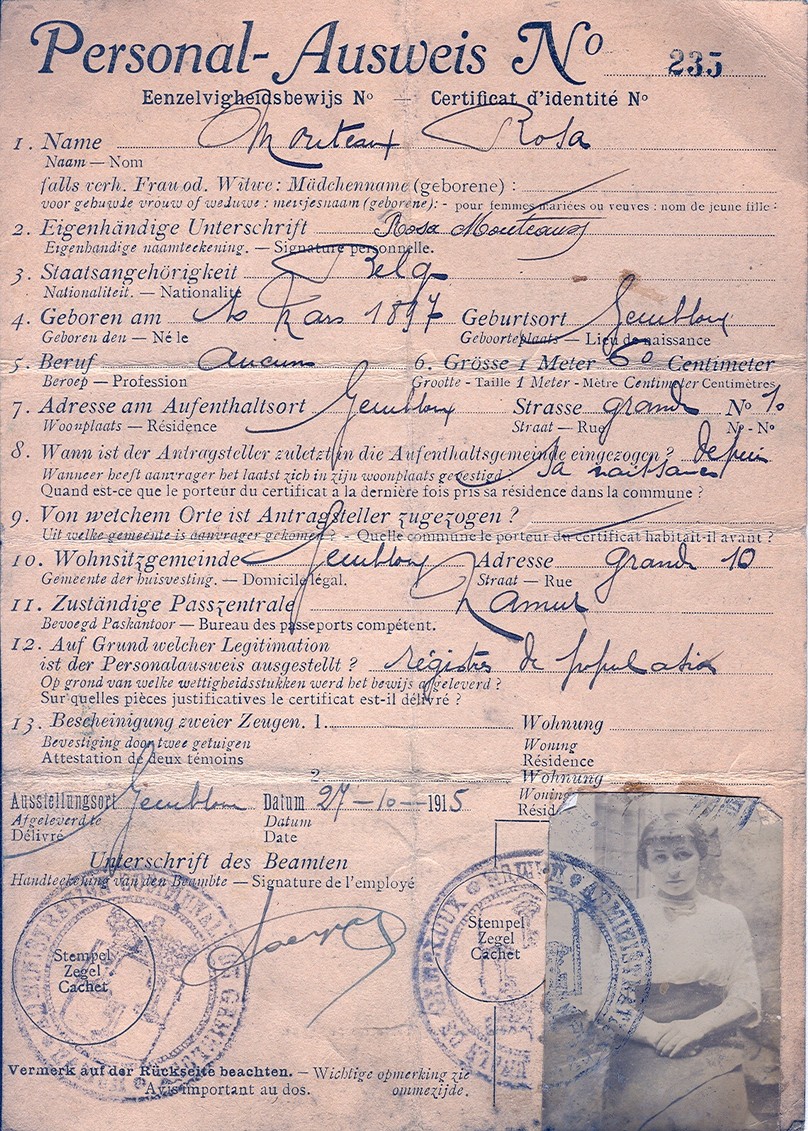 Personal-Ausweis Nº 235
Eenzelvigheidsbewijs Nº — Certificat d'identité Nº
1. Name Mouteaux Rosa
Naam — Nom
falls verh. Frau od. Witwe: Mädchenname (geborene) :
voor gehuwde vrouw of weduwe : meisjesnaam (geborene): - pour femmes mariées ou veuves : nom de jeune fille :
2. Eigenhändige Unterschrift Rosa Mouteaux
Eigenhandige naamteekening. — Signature personnelle.
3. Staatsangehörigkeit Belge
Nationaliteit. — Nationalité
4. Geboren am 10 Mars 1897 Geburtsort Gembloux
Geboren den — Né le Geboorteplaats — Lieu de naissance
5. Beruf aucune 6. Grösse 1 Meter 60 Centimeter
Beroep — Profession Grootte - Taille 1 Meter - Mètre Centimeter Centimètres
7. Adresse am Aufenthaltsort Gembloux Strasse grande Nº 10
Woonplaats — Résidence Straat — Rue Nº - Nº
8. Wann ist der Antragsteller zuletzt in die Aufenthaltsgemeinde eingezogen ? depuis
Wanneer heeft aanvrager het laatst zich in zijn woonplaats gevestigd : sa naissance
Quand est-ce que le porteur du certificat a la dernière fois pris sa résidence dans la commune ?
9. Von welchem Orte ist Antragsteller zugezogen ?
Uit welke gemeente is aanvrager gekomen ? - Quelle commune le porteur du certificat habitait-il avant ?
10. Wohnsitzgemeinde Gembloux Adresse grande 10
Gemeente der huisvesting. — Domicile légal. Straat — Rue
11. Zuständige Passzentrale Namur
Bevoegd Paskantoor — Bureau des passeports compétent.
12. Auf Grund welcher Legitimation
ist der Personalausweis ausgestellt ? régistres de population
Op grond van welke wettigheidsstukken werd het bewijs afgeleverd ?
Sur quelles pièces justificatives le certificat est-il délivré ?
13. Bescheinigung zweier Zeugen. 1. Wohnung
Bevestiging door twee getuigen Woning
Attestation de deux témoins Résidence
2. Wohnung
Woning
Ausstellungsort Gembloux Datum 27-10-1915
Afgeleverd te Datum
Délivré Date
Unterschrift des Beamten
Handteekening van den Beambte — Signature de l'employé
Stempel
Zegel
Cachet
Stempel
Zegel
Cachet
Vermerk auf der Rückseite beachten. — Wichtige opmerking zie
Avis important au dos. ommezijde.